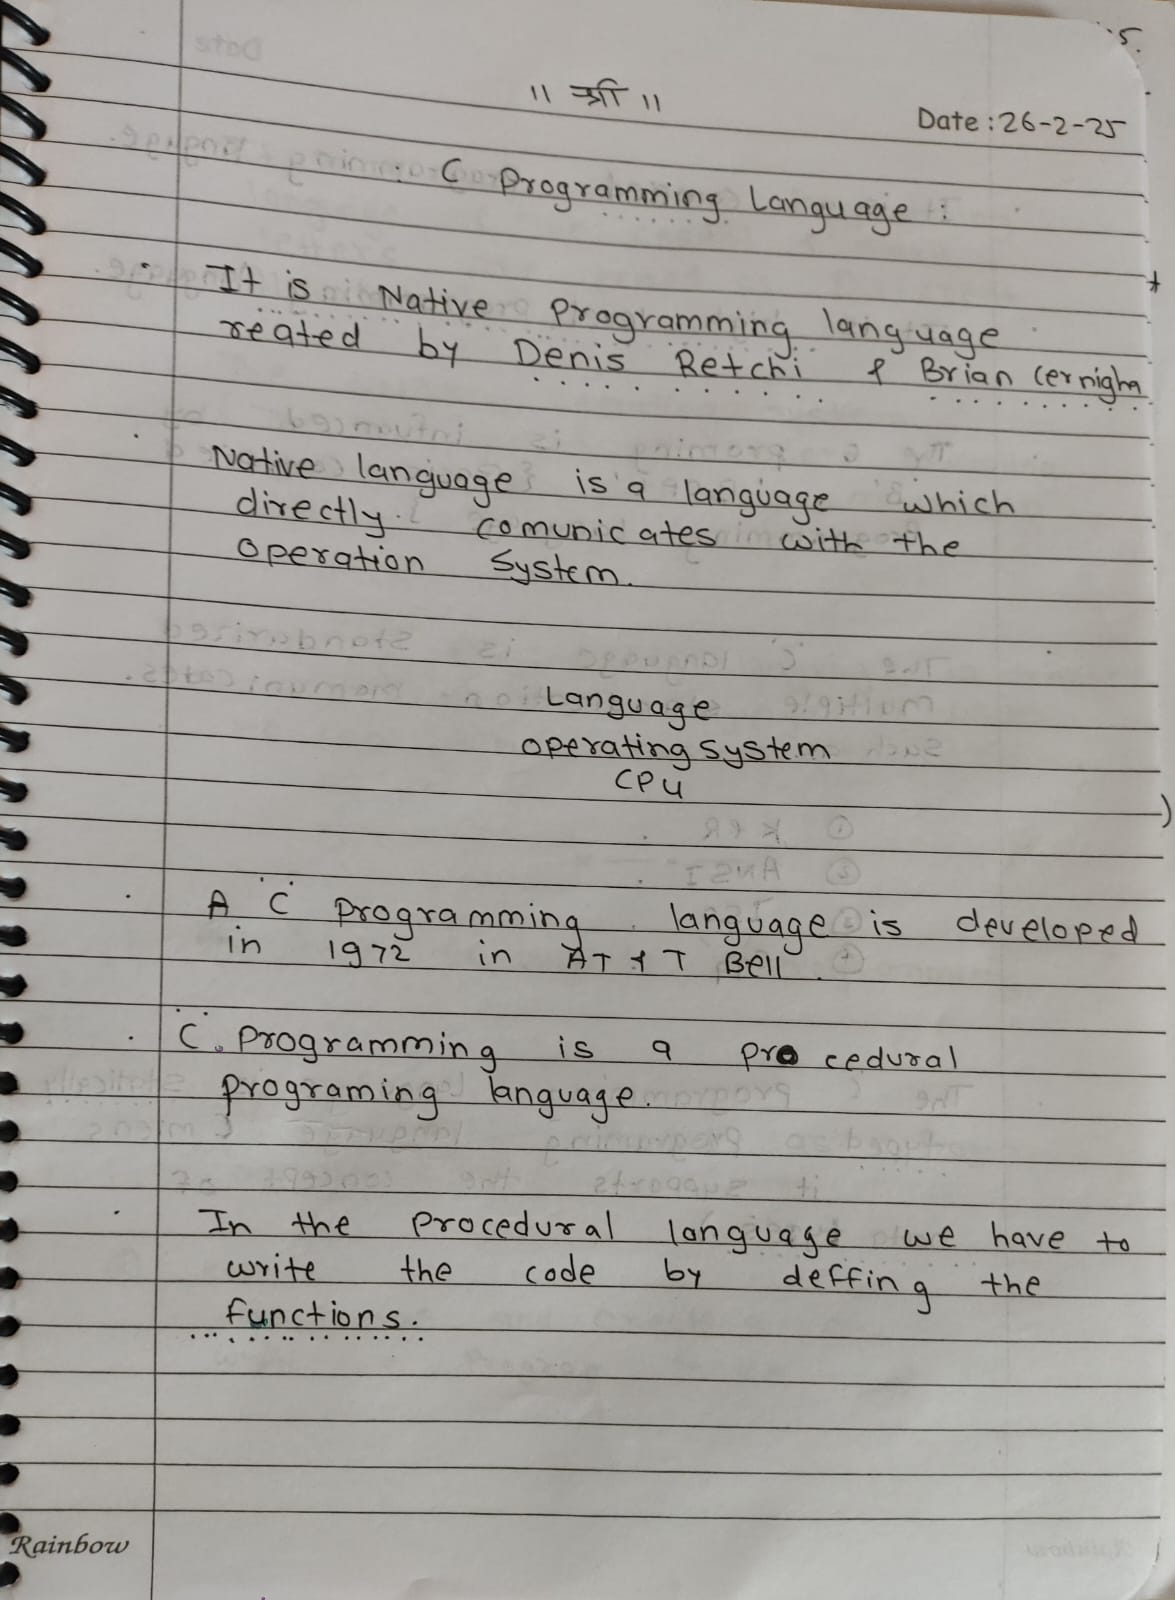 5.
॥ श्री ॥
Date : 26-2-25
C Programming Language :
It is Native Programming language
reated by Denis Retchi & Brian Cernigha
Native language is a language which
directly comunicates with the
operation System.
Language
operating system
CPU
A 'C' programming language is developed
in 1972 in AT & T Bell.
'C' Programming is a procedural
programing language.
In the procedural language we have to
write the code by deffing the
functions.
Rainbow